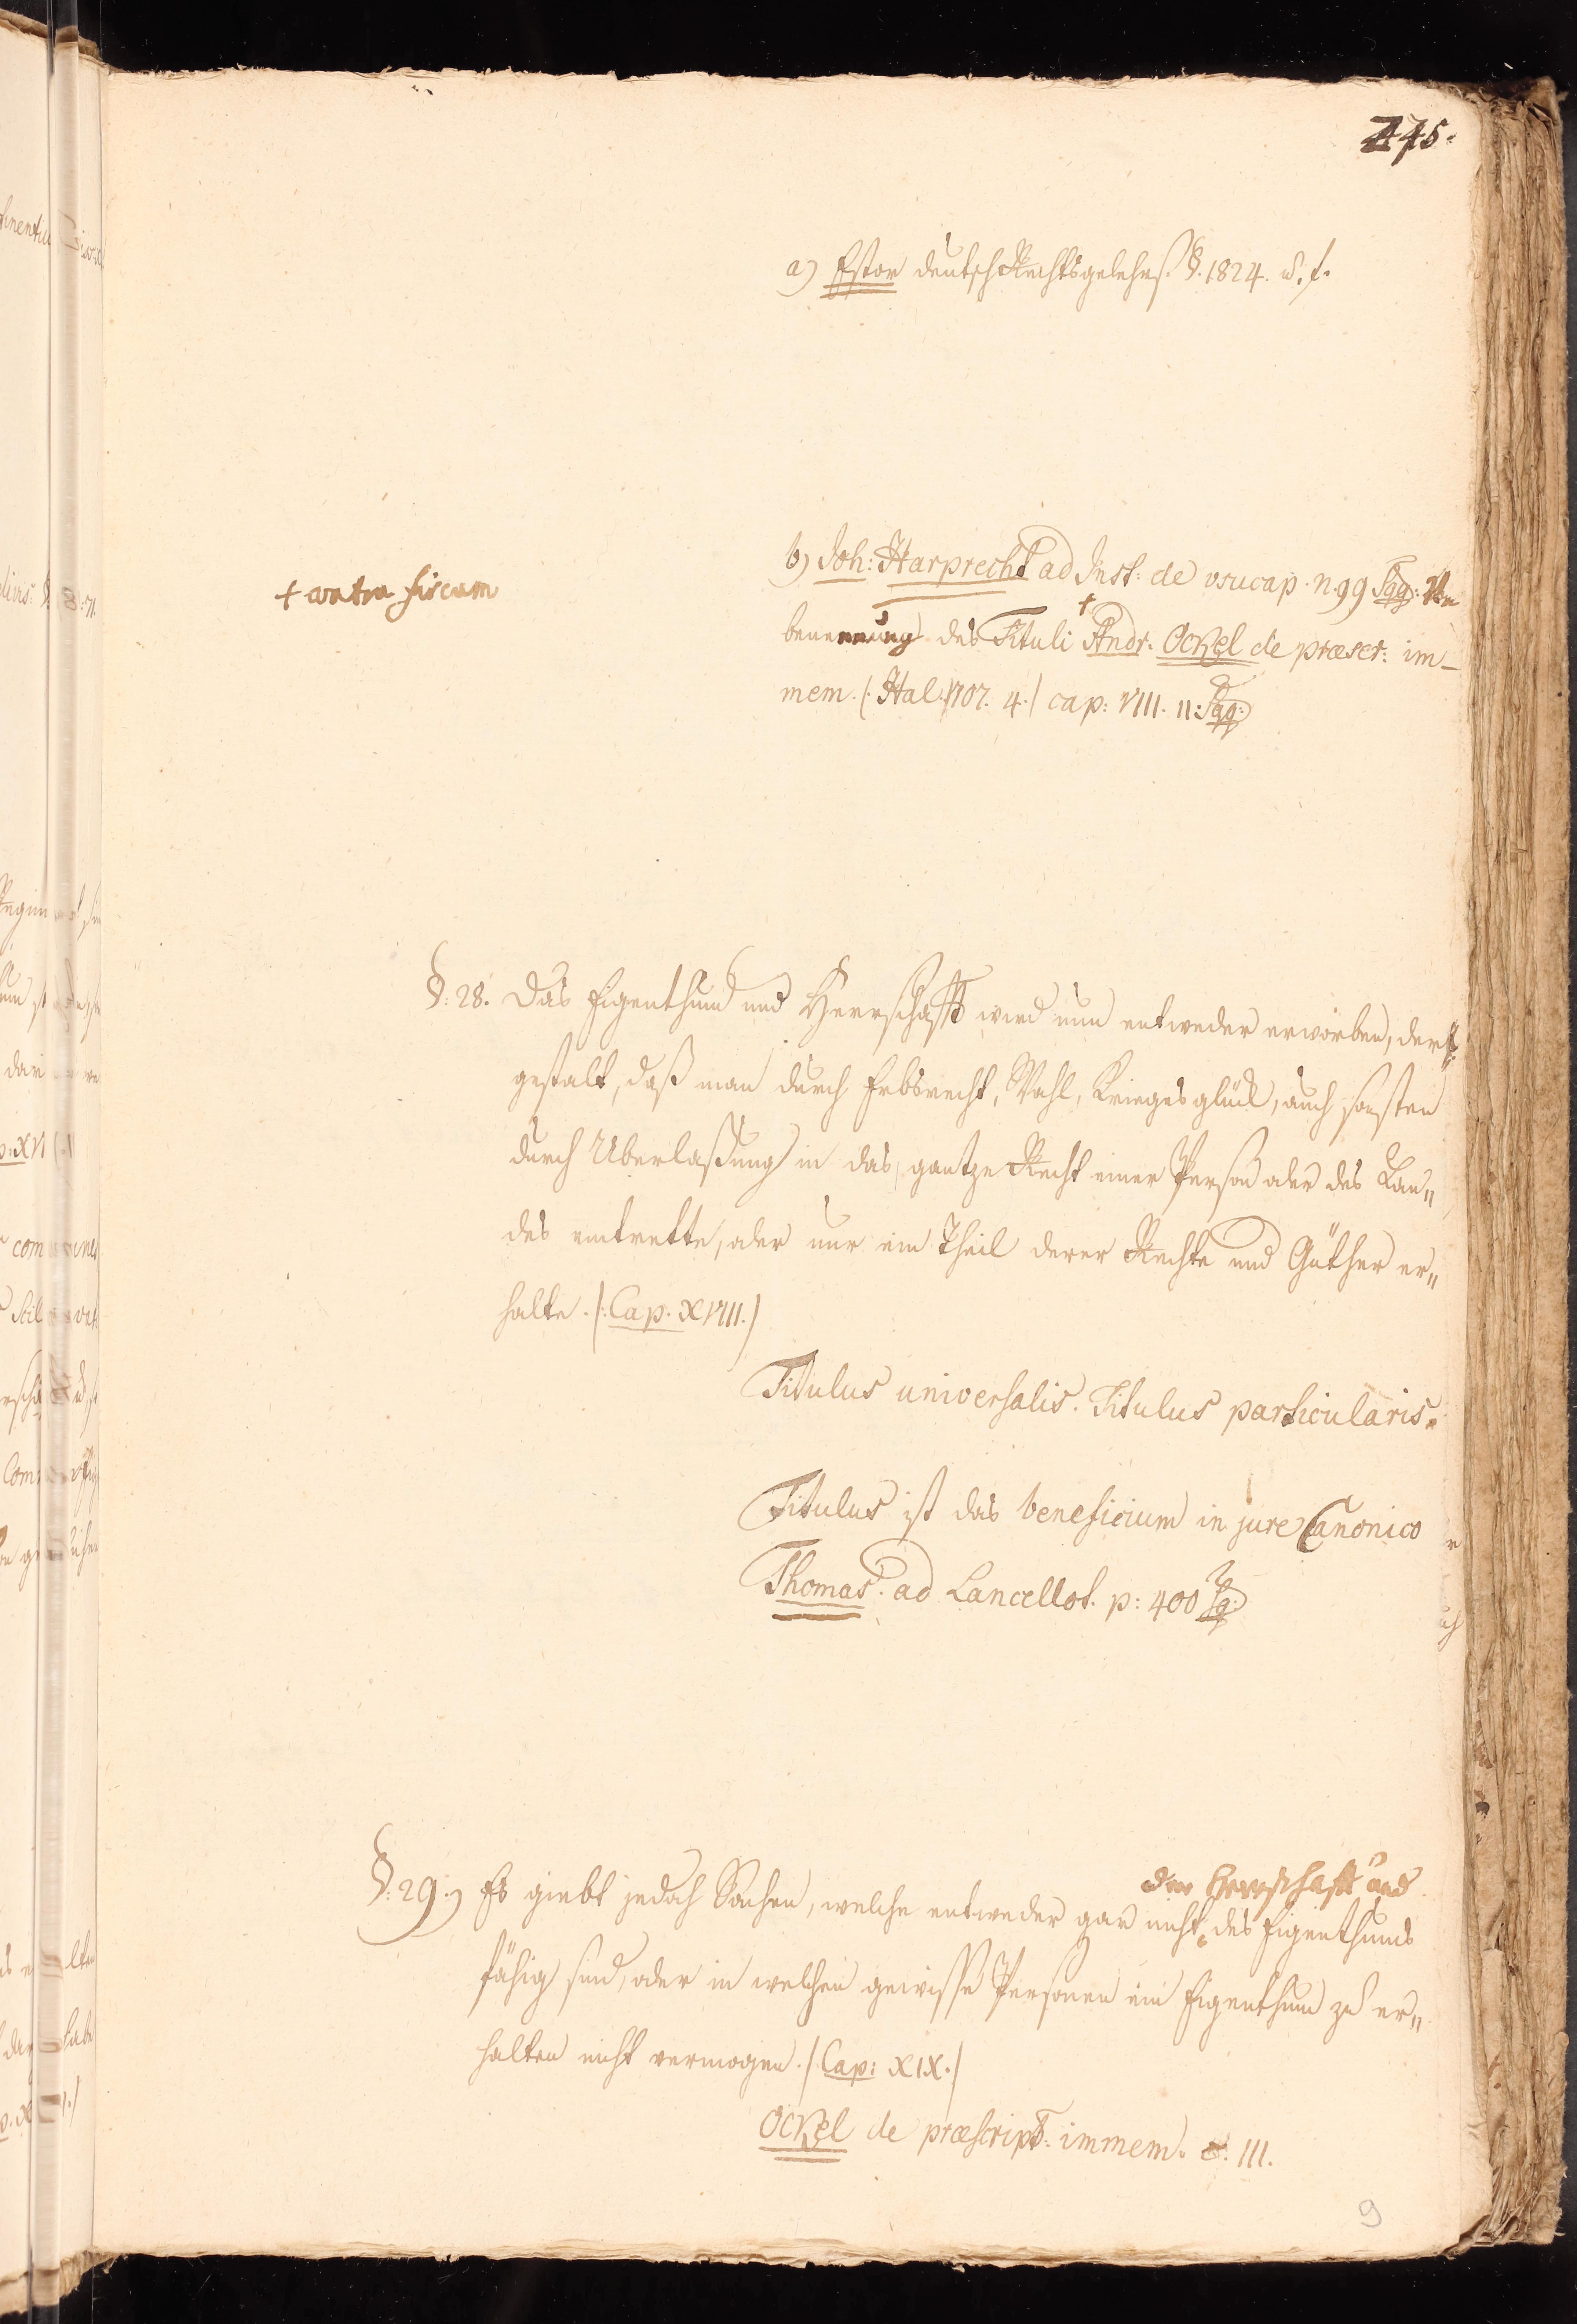 a) Estor deutsch Rechtsgelehrs. §. 1824. u. f.
b) Joh: Harprecht ad Inst: de usucap. n. 99 Sqq:
+ contra fiscum
benennung des Tituli + Andr. Ockel de præscr: im-
mem. (: Hal. 1707. 4. /) cap: VIII. 11: Sqq:
§: 28. Das Eigenthum und Herrschafft wird nun entweder erworben, der"
gestalt, daß man durch Erbsrecht, Wahl, Krieges glück, auch sonsten
durch Uberlaßung in das gantze Recht einer Person oder des Lan"
des eintrette, oder nur ein Theil derer Rechte und Güther er"
halte. (: Cap. XVIII. /)
Titulus universalis. Titulus particularis.
Titulus ist das beneficium in jure Canonico
Thomas. ad Lancellot. p: 400 Sq:
§: 29.) Es giebt jedoch Sachen, welche entweder gar nicht der Herrschafft und des Eigenthums
fähig sind, oder in welchen gewisse Personen ein Eigenthum zu er"
halten nicht vermögen. (: Cap: XIX. /)
Ockel de præscript: immem. c. III.
9